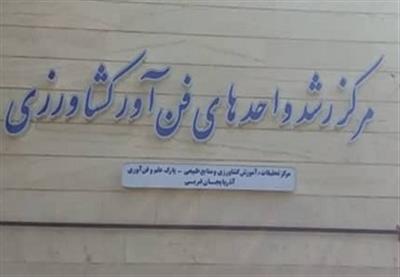 مرکز رشد واحدهای فن آور کشاورزی
مرکز تحقیقات و آموزش کشاورزی و منابع طبیعی - پارک علم و فن آوری
آذربایجان غربی